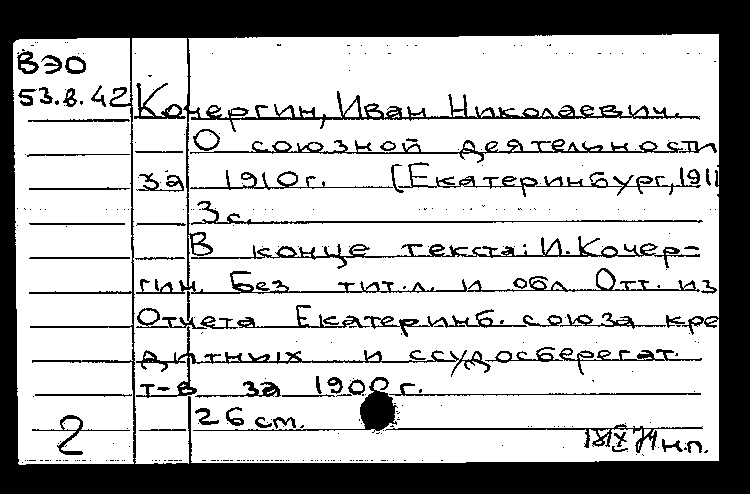 ВЭО
53.в.42 Кочергин, Иван Николаевич.
О союзной деятельности
за 1910г. [Екатеринбург, 1911]
3с.
В конце текста: И.Кочер=
гин. Без тит.л. и обл Отт. из
Отчета Екатеринб. союза кре
дитных и ссудосберегат.
т-в за 1900г.
26 cm.
2 н.п.